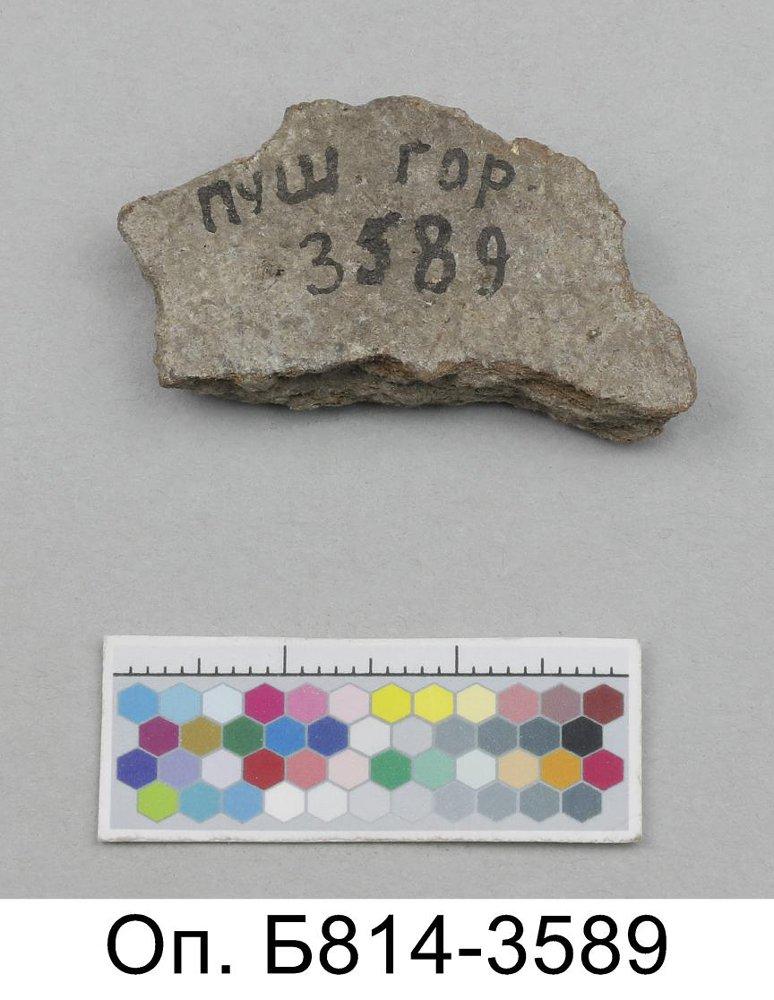 пуш гор.
3589
Оп. Б814-3589